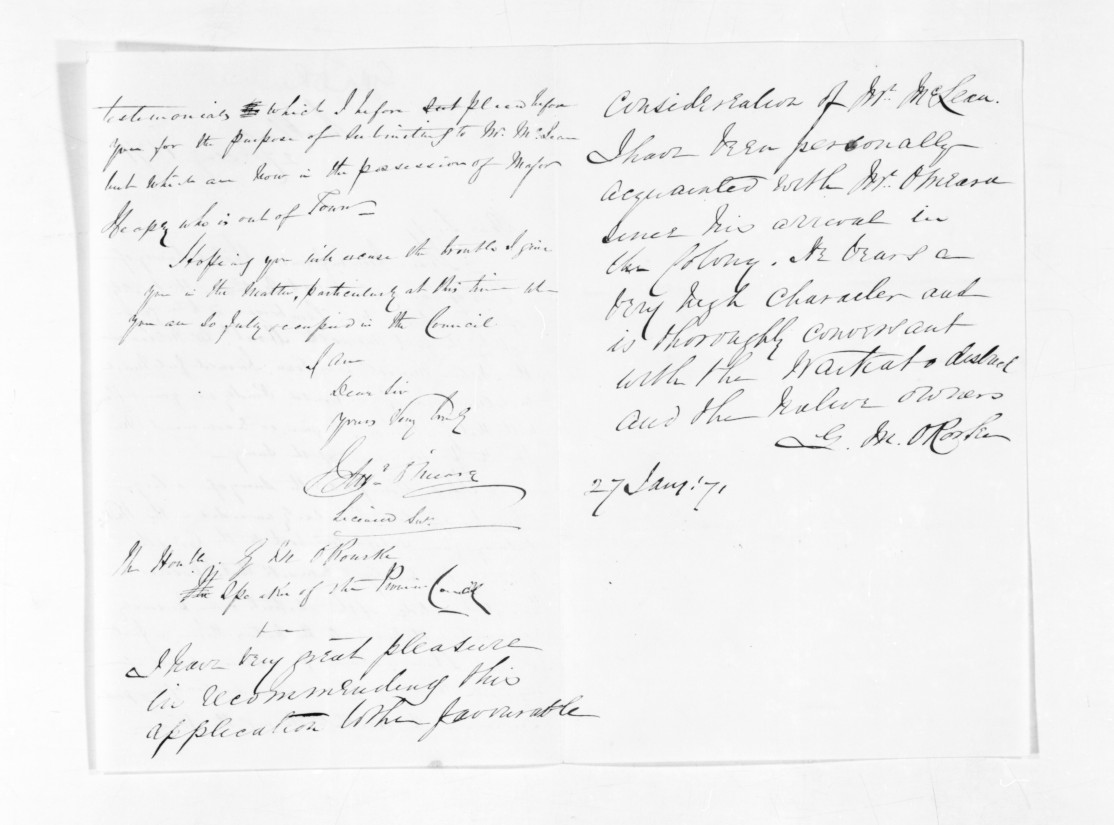 testimonials which I before placed before
you for the purpose of submitting to Mr. McLean
but which are now in the possession of Major
Heaphy who is out of Town
Hoping you will excuse the trouble I give
you in the Matter, particularly at this time
you are so fully occupied in the Council
I am
Dear Sir
Yours Very truly
O'Meara
Licensed Sur.
The Honble. G M O'Rourke
Speaker of the Council
I have very great pleasure
in recommending this
application to the favourable
consideration of Mr. McLean.
I have been personally
acquainted with Mr. O'Meara
since his arrival in
the Colony. He bears a
very high character and
is thoroughly conversant
with the Waikato district
and the Native owners
G. M. O'Rorke
27 Jany. 71